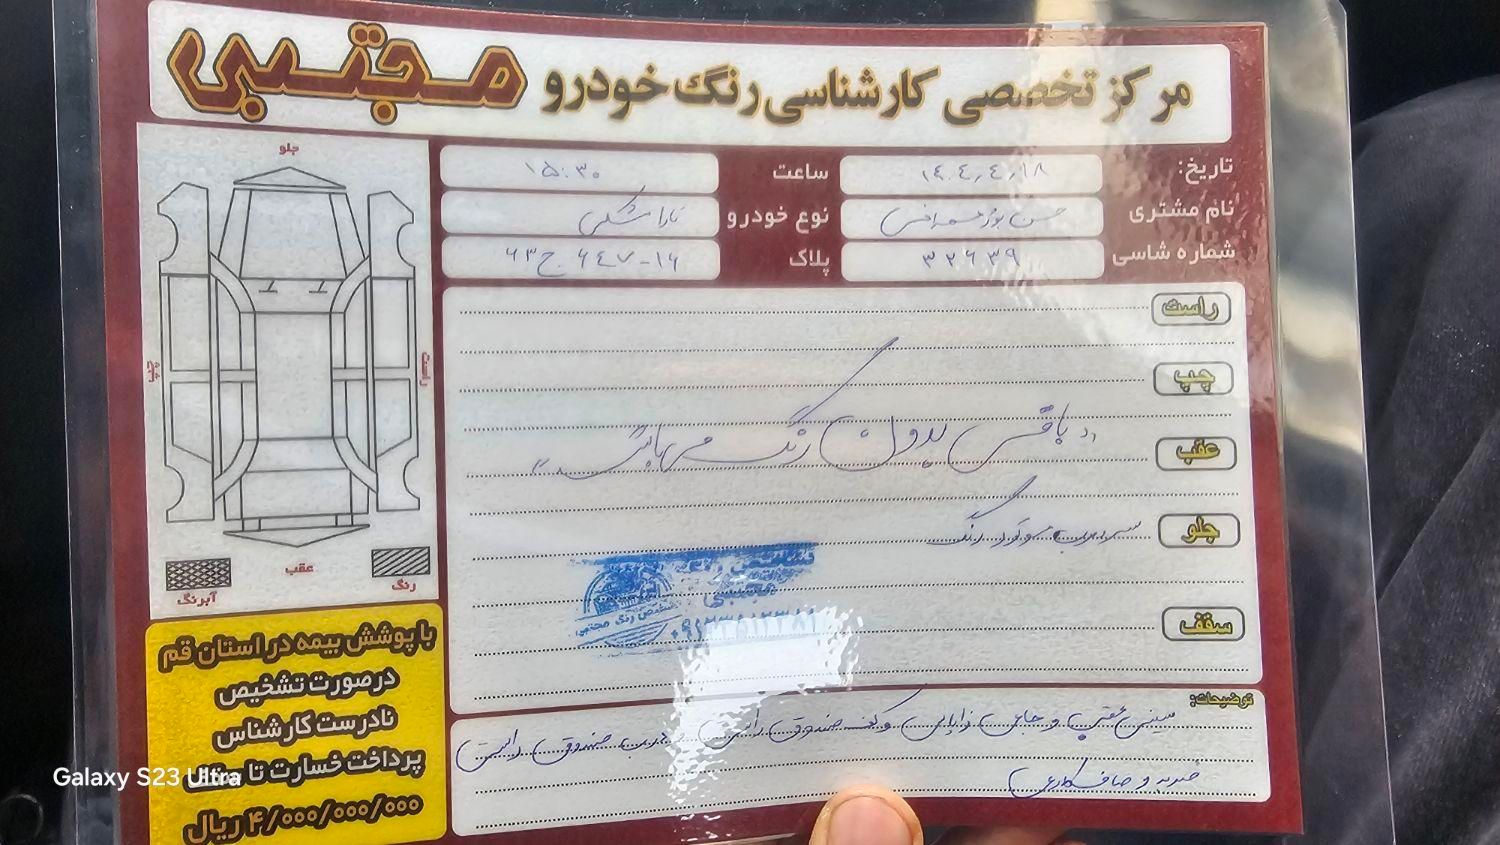 مرکز تخصصی کارشناسی رنگ خودرو مجتبی
تاریخ: ۱۴۰۴٫۴٫۱۸ ساعت ۱۵:۳۰
نام مشتری حسن نوع خودرو تارا مشکی
شماره شاسی ۳۲۶۳۹ پلاک ۱۶-۶۴۷ ج ۶۳
جلو
چپ
راست
عقب
آبرنگ
رنگ
راست
چپ
عقب
جلو
سقف
باقی بدون رنگ میباشد
سرسپر موتور رنگ
تشخیص رنگ
مجتبی
تشخیص رنگ مجتبی
توضیحات:
سینی عقب و جای زاپاس و کف صندوق راست صندوق راست
ضربه و صافکاری
با پوشش بیمه در استان قم
درصورت تشخیص
نادرست کارشناس
پرداخت خسارت تا سقف
۴/۰۰۰/۰۰۰/۰۰۰ ریال
Galaxy S23 Ultra